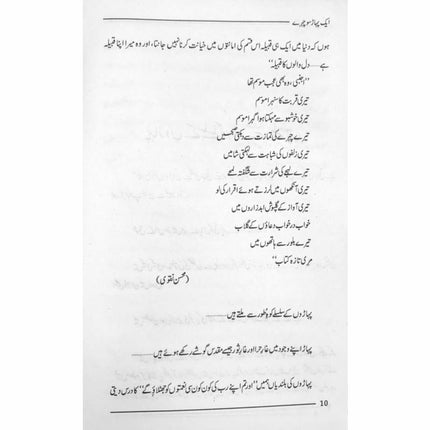 ایک پہاڑ سو چہرے
ہوں کہ دنیا میں ایک ہی قبیلہ اس قسم کی امانتوں میں خیانت کرنا نہیں جانتا، اور وہ میرا اپنا قبیلہ
ہے—دل والوں کا قبیلہ"
"اجنبی، وہ بھی عجب موسم تھا
تیری قربت کا سنہرا موسم
تیری خوشبو سے مہکتا ہوا گہرا موسم
تیرے چہرے کی تمازت سے دہکتی صبحیں
تیری زلفوں کی شباہت سے لہکتی شامیں
تیرے لہجے کی شرارت سے شگفتہ لمحے
تیری آنکھوں میں لرزتے ہوئے اقرار کی لو
تیری آواز کے گلپوش ابد زاروں میں
خواب در خواب دعاؤں کے گلاب
تیرے بلور سے ہاتھوں میں
مری تازہ کتاب"
(محسن نقوی)
پہاڑوں کے سلسلے کوہ طور سے ملتے ہیں—
پہاڑ اپنے وجود میں غارِ حرا اور غارِ ثور جیسے مقدس گوشے رکھے ہوئے ہیں—
پہاڑوں کی بلندیاں ہمیں "اور تم اپنے رب کی کون کون سی نعمتوں کو جھٹلاؤ گے" کا درس دیتی
10